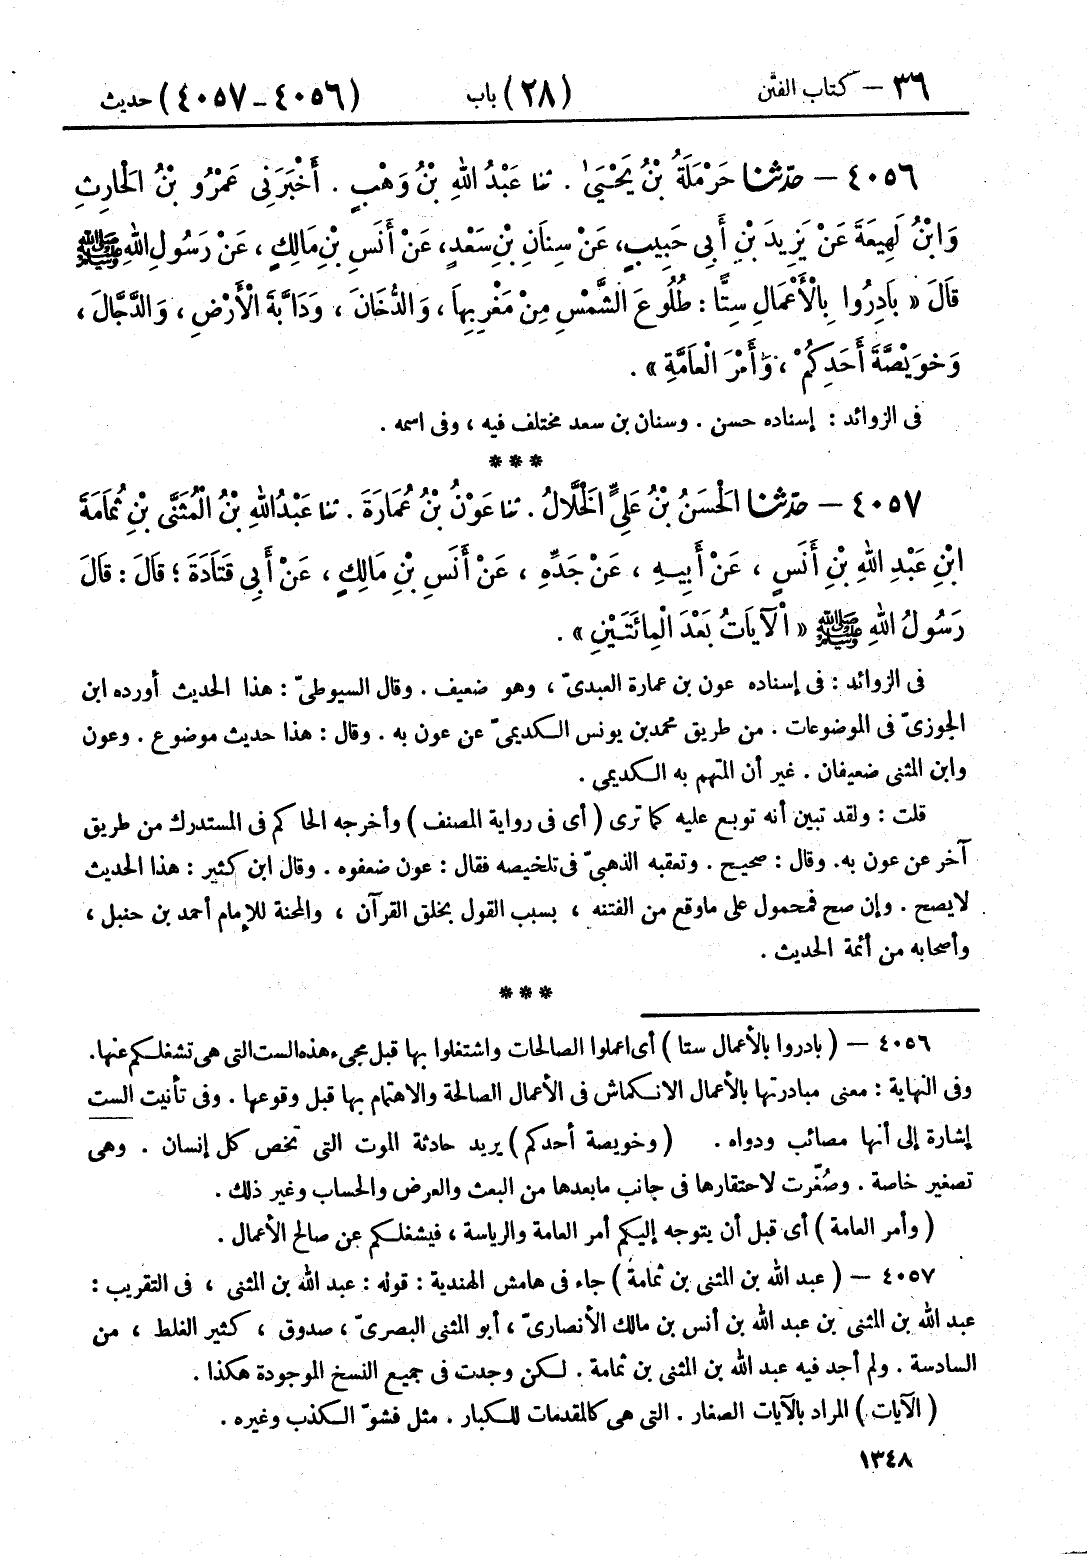 ٣٦ — كتاب الفتن (٢٨) باب (٤٠٥٦ – ٤٠٥٧) حديث
٤٠٥٦ — حَدَّثَنَا حَرْمَلَةُ بْنُ يَحْيَىٰ . ثنا عَبْدُ اللهِ بْنُ وَهْبٍ . أَخْبَرَنِى عَمْرُو بْنُ الْحَارِثِ
وَابْنُ لَهِيعَةَ عَنْ يَزِيدَ بْنِ أَبِى حَبِيبٍ، عَنْ سِنَانِ بْنِ سَعْدٍ، عَنْ أَنَسِ بْنِ مَالِكٍ ، عَنْ رَسُولِ اللهِ ﷺ
قَالَ « بَادِرُوا بِالْأَعْمَالِ سِتًّا : طُلُوعَ الشَّمْسِ مِنْ مَغْرِبِهَا ، وَالدُّخَانَ ، وَدَابَّةَ الْأَرْضِ ، وَالدَّجَّالَ ،
وَخُوَيْصَّةَ أَحَدِكُمْ ، وَأَمْرَ الْعَامَّةِ » .
فى الزوائد : إسناده حسن . وسنان بن سعد مختلف فيه ، وفى اسمه .
***
٤٠٥٧ — حَدَّثَنَا الْحَسَنُ بْنُ عَلِيٍّ الْخَلَّالُ . ثنا عَوْنُ بْنُ عُمَارَةَ . ثنا عَبْدُ اللهِ بْنُ الْمُثَنَّى بْنِ ثُمَامَةَ
ابْنِ عَبْدِ اللهِ بْنِ أَنَسٍ ، عَنْ أَبِيهِ ، عَنْ جَدِّهِ ، عَنْ أَنَسِ بْنِ مَالِكٍ ، عَنْ أَبِى قَتَادَةَ ؛ قَالَ : قَالَ
رَسُولُ اللهِ ﷺ « الْآيَاتُ بَعْدَ الْمِائَتَيْنِ » .
فى الزوائد : فى إسناده عون بن عمارة العبدىّ ، وهو ضعيف . وقال السيوطىّ : هذا الحديث أورده ابن
الجوزىّ فى الموضوعات . من طريق محمد بن يونس الكديمىّ عن عون به . وقال : هذا حديث موضوع . وعون
وابن المثنى ضعيفان . غير أن المتهم به الكديمى .
قلت : ولقد تبين أنه توبع عليه كما ترى ( أى فى رواية المصنف ) وأخرجه الحاكم فى المستدرك من طريق
آخر عن عون به. وقال : صحيح . وتعقبه الذهبىّ فى تلخيصه فقال : عون ضعفوه . وقال ابن كثير : هذا الحديث
لا يصح . وإن صح فمحمول على ما وقع من الفتنه ، بسبب القول بخلق القرآن ، والمحنة للإمام أحمد بن حنبل ،
وأصحابه من أئمة الحديث .
***
٤٠٥٦ — ( بادروا بالأعمال ستا ) أى اعملوا الصالحات واشتغلوا بها قبل مجىء هذه الست التى هى تشغلكم عنها.
وفى النهاية : معنى مبادرتها بالأعمال الانكماش فى الأعمال الصالحة والاهتمام بها قبل وقوعها . وفى تأنيث الست
إشارة إلى أنها مصائب ودواه . ( وخويصة أحدكم ) يريد حادثة الموت التى تخص كل إنسان . وهى
تصغير خاصة . وصُغّرت لاحتقارها فى جانب ما بعدها من البعث والعرض والحساب وغير ذلك .
( وأمر العامة ) أى قبل أن يتوجه إليكم أمر العامة والرياسة ، فيشغلكم عن صالح الأعمال .
٤٠٥٧ — ( عبد الله بن المثنى بن ثمامة ) جاء فى هامش الهندية : قوله : عبد الله بن المثنى ، فى التقريب :
عبد الله بن المثنى بن عبد الله بن أنس بن مالك الأنصارىّ ، أبو المثنى البصرىّ ، صدوق ، كثير الغلط ، من
السادسة . ولم أجد فيه عبد الله بن المثنى بن ثمامة . لكن وجدت فى جميع النسخ الموجودة هكذا .
( الآيات ) المراد بالآيات الصغار . التى هى كالمقدمات للكبار . مثل فشوّ الكذب وغيره .
١٣٤٨